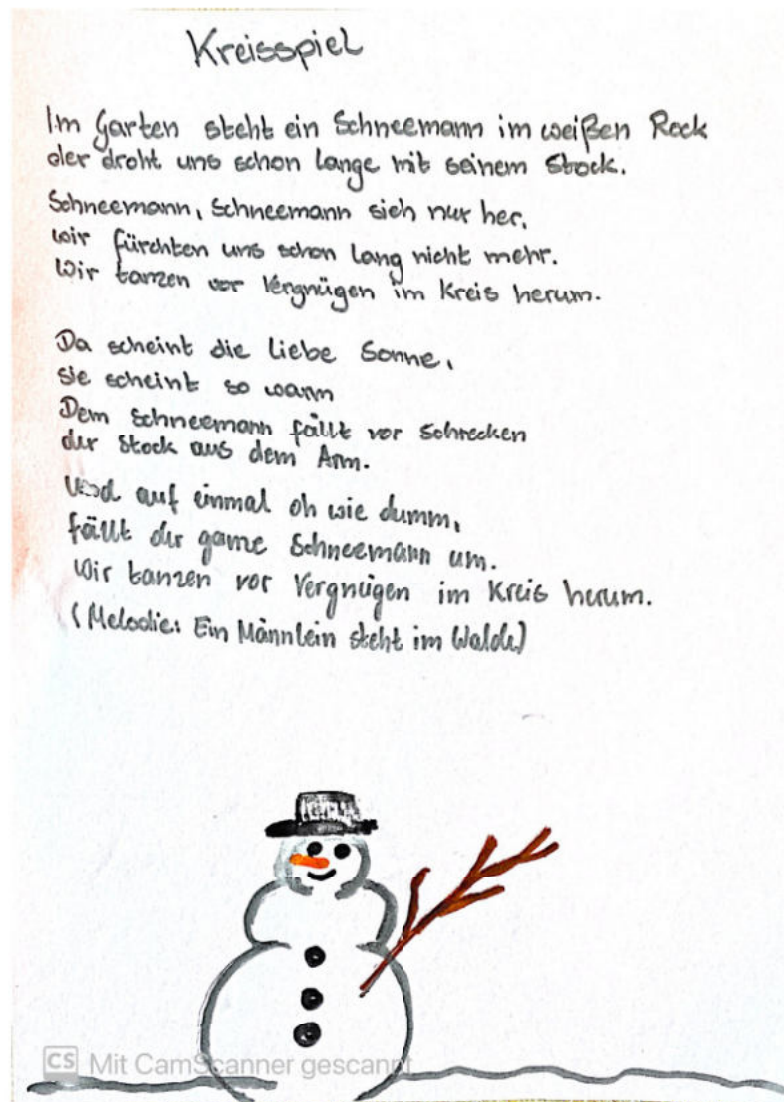 Kreisspiel
Im Garten steht ein Schneemann im weißen Rock
der droht uns schon lange mit seinem Stock.
Schneemann, Schneemann sieh nur her,
wir fürchten uns schon lang nicht mehr.
Wir tanzen vor Vergnügen im Kreis herum.
Da scheint die liebe Sonne,
sie scheint so warm
Dem Schneemann fällt vor Schrecken
der Stock aus dem Arm.
Und auf einmal oh wie dumm,
fällt der ganze Schneemann um.
Wir tanzen vor Vergnügen im Kreis herum.
(Melodie: Ein Männlein steht im Walde)
CS Mit CamScanner gescannt